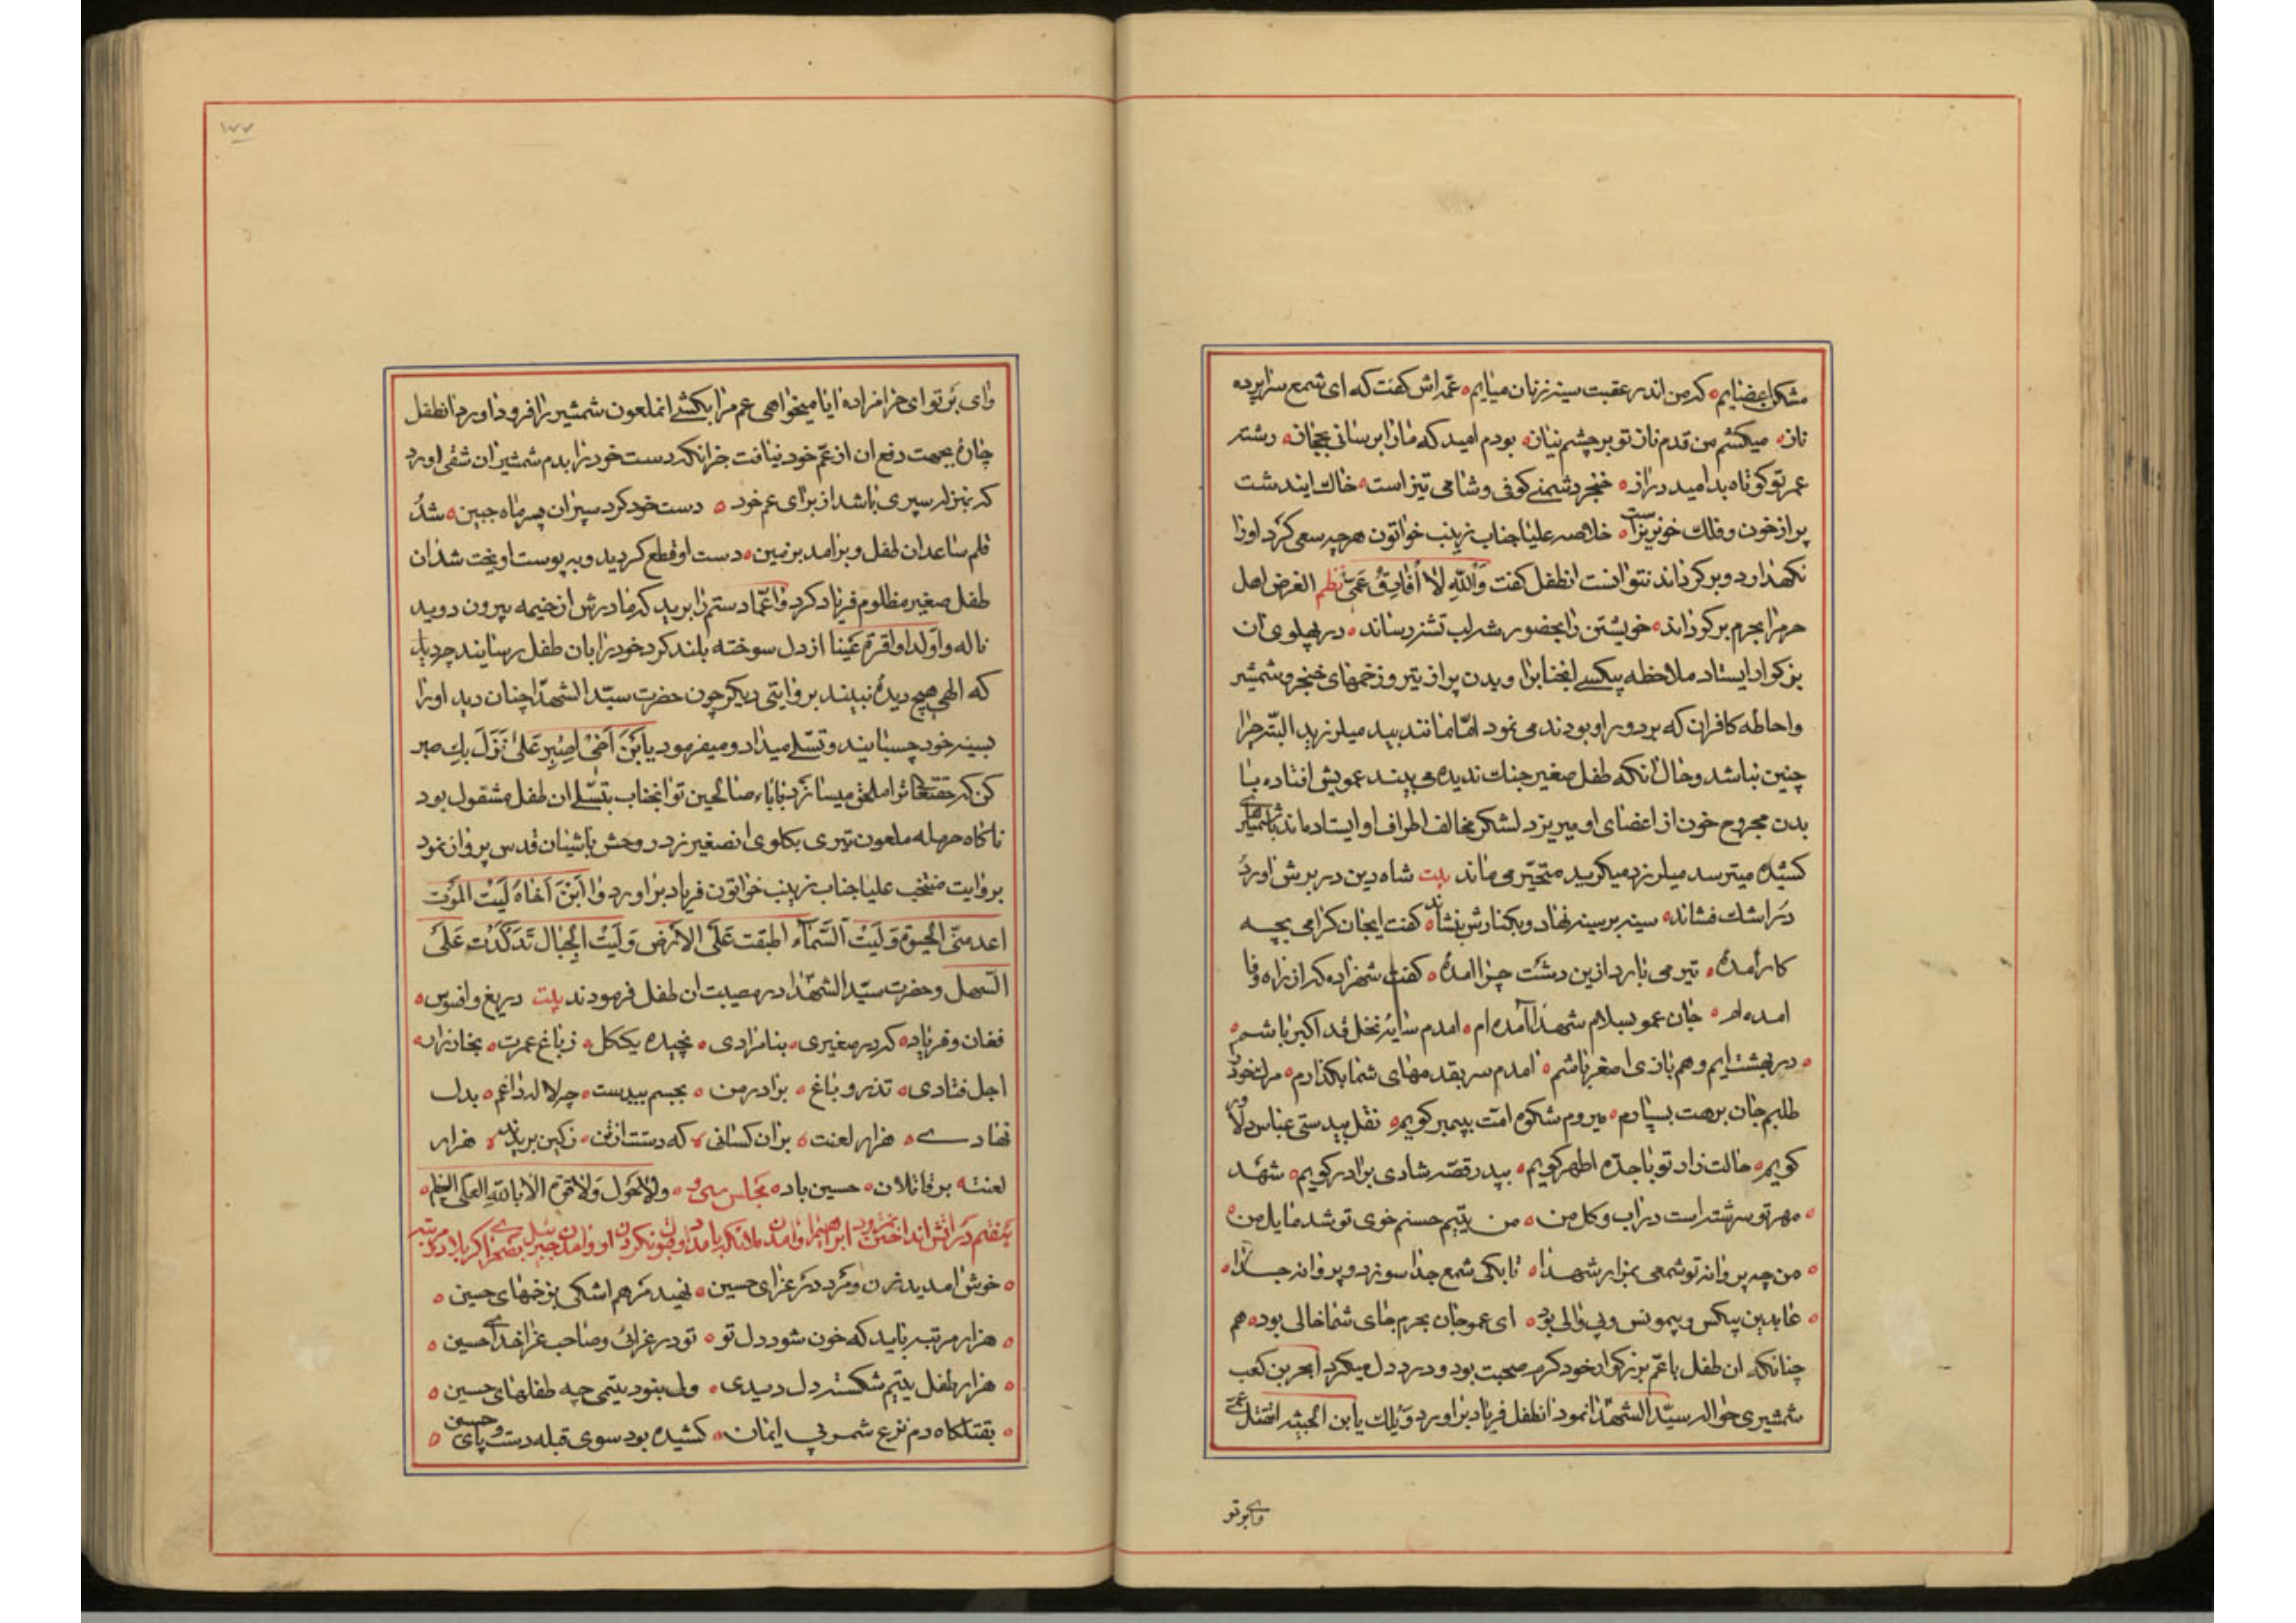 مشکل اعضایم که من اندر عقبت سینه زنان میایم عمه اش گفت که ای شمع سراپرده
ناز میکشم من قدم ناز تو بر چشم نیاز بودم امید که ما را برسانی بحجاز رشته
عمر تو کوتاه بد امید دراز خنجر دشمن کوفی و شامی تیز است خاک ایندشت
پر از خون و فلک خونریز است خلاصه علیا جناب زینب خواتون هر چه سعی کرد اورا
نگهدارد و برگرداند نتوانست انطفل گفت وَاللّهِ لا اُفارِقُ عَمّی نظم الغرض اهل
حرم را بحرم برگرداند خویشتن را بحضور شه لب تشنه رساند در پهلوی ان
بزرکوار ایستاد ملاحظه بیکسی انجناب را و بدن پر از تیر و زخمهای خنجر و شمشیر
و احاطه کافران که بر دور او بودند می نمود امّا مانند بید میلرزید البتّه چرا
چنین نباشد و حال انکه طفل صغیر جنک ندیده می بیند عمویش افتاده با
بدن مجروح خون از اعضای او میریزد لشکر مخالف اطراف او ایستاده اند با شمشیرهای
کشیده میترسد میلرزد میکرید متحیّر می ماند بیت شاه دین در برش اورد
در اشک فشاند سینه بر سینه نهاد و بکنارش بنشاند گفت ایجان گرامی بچه
کار آمدهٔ تیر می بارد ازین دشت چرا امدهٔ گفت شهزاده که از راه وفا
امده ام جان عمو بسلام شهدا آمده ام امدم سایه نخل قد اکبر باشم
در بهشت ایم و هم بازی اصغر باشم امدم سر بقدمهای شما بگذارم مرک خود
طلبم جان برهت بسپارم میروم شکوه امّت به پیمبر کویم نقل بیدستی عباس دلاور
کویم حالت زار تو با جدّه اطهر کویم بپدر قصّه شادی برادر کویم شهد
مهر تو سرشته است در اب و کل من من یتیم حسنم خوی تو شد مایل من
من چه پروانه تو شمعی بمزار شهدا تا بکی شمع جدا سوزد و پروانه جدا
عابدین بیکس و بیمونس و بی والی بود ای عمو جان بحرم جای شما خالی بود هم
چنانکه ان طفل با عمّ بزرکوار خود کرم صحبت بود و درد دل میکرد ابحر بن کعب
شمشیری حواله سیّد الشهدا نمود انطفل فریاد براورد وَیلک یا بن الخبیثه اتقتل عمّی
وای بر تو
۱۷۷
وای بر تو ای حرامزاده ایا میخواهی عم مرا بکشی انملعون شمشیر را فرود اورد انطفل
چارهٔ بجهت دفع ان از عمّ خود نیافت جز انکه دست خود را بدم شمشیر ان شقی اورد
که بمنزله سپری باشد از برای عم خود دست خود کرد سپر ان پسر ماه جبین شد
قلم ساعد ان طفل و برامد بر زمین دست او قطع کردید و به پوست اویخت شد ان
طفل صغیر مظلوم فریاد کرد وا عمّاه دستم را برید که مادرش از خیمه بیرون دوید
ناله وا ولدا وا قرة عینا از دل سوخته بلند کرد خود را بان طفل رسانید چه دید
که الهی هیچ دیدهٔ نبیند بروایتی دیکر چون حضرت سیّد الشهدا چنان دید او را
بسینه خود چسبانید و تسلی میداد و میفرمود یا بْنَ اَخی اِصْبِر عَلی نَزَلَ بِکَ صبر
کن که حقتعالی ترا ملحق میسازد بآباء صالحین تو انجناب بتسلی ان طفل مشغول بود
ناکاه حرمله ملعون تیری بکلوی انصغیر زد روحش باشیان قدس پرواز نمود
بروایت منتخب علیا جناب زینب خواتون فریاد براورد وا ابْنَ اَخاهُ لَیْتَ المَوْت
اعدمنی الحیوة وَ لَیْتَ السَّمآء اطبقت عَلَی الاَرْض وَ لَیْتَ الجِبال تَدَکْدَکَت عَلَی
السهل و حضرت سیّد الشهدا در مصیبت ان طفل فرمودند بیت دریغ و افسوس
فغان و فریاد که در صغیری بنامرادی نچیده یککل ز باغ عمرت بخار زار
اجل فتادی تذرو باغ برادر من بجسم بیدست چو لاله داغم بدل
نهادی هزار لعنت بران کسانی که دستت از تن ز کین بریدند هزار
لعنت بر قاتلان حسین باد مجلس سی و ولا حَول وَلا قوة الا بالله العلی العظیم
خوش امدید زن و مرد در عزای حسین نهید مرهم اشکی بزخمهای حسین
هزار مرتبه باید که خون شود دل تو تو در عزائی و صاحب عزا خدای حسین
هزار طفل یتیم شکسته دل دیدی ولی نبود یتیمی چه طفلهای حسین
بقتلکاه دم نزع شمر بی ایمان کشیده بود سوی قبله دست و پای حسین